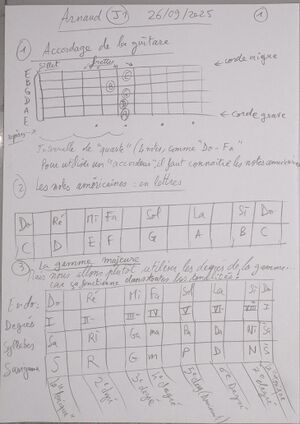 Arnaud J1 26/09/2025 1
1 Accordage de la guitare
Sillet frettes
E
B
G
D
A
E
C
B
corde aigue
corde grave
repères
Intervalle de "quarte" (4 notes, comme "Do - Fa"
Pour utiliser un "accordeur" il faut connaître les notes américaines
2 Les notes américaines : en lettres
Do Ré Mi Fa Sol La Si Do
C D E F G A B C
3 La gamme majeure
mais nous allons plutôt utiliser les degrés de la gamme.
car ça fonctionne dans toutes les tonalités !
En do: Do Ré Mi Fa Sol La Si Do
Degrés I II- III- IV V VI- VII I
Syllabes Sa Ri Ga ma Pa Da Ni Sa
Sargame S R G m P D N S
"Tonique" 2° degré 3° degré 4° degré 5° deg (dominante) 6° Degré 7° degré